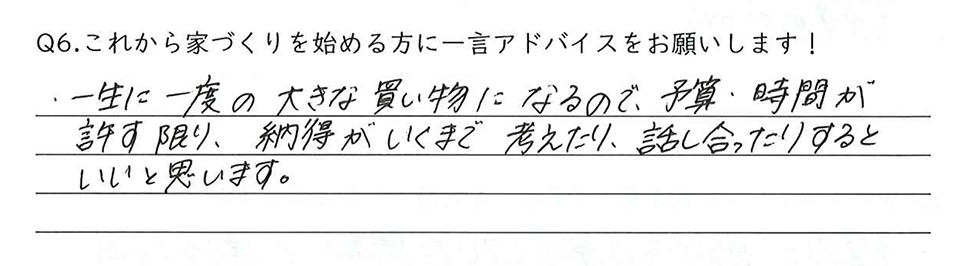 Q6.これから家づくりを始める方に一言アドバイスをお願いします!
・一生に一度の大きな買い物になるので、予算・時間が
許す限り、納得がいくまで考えたり、話し合ったりすると
いいと思います。